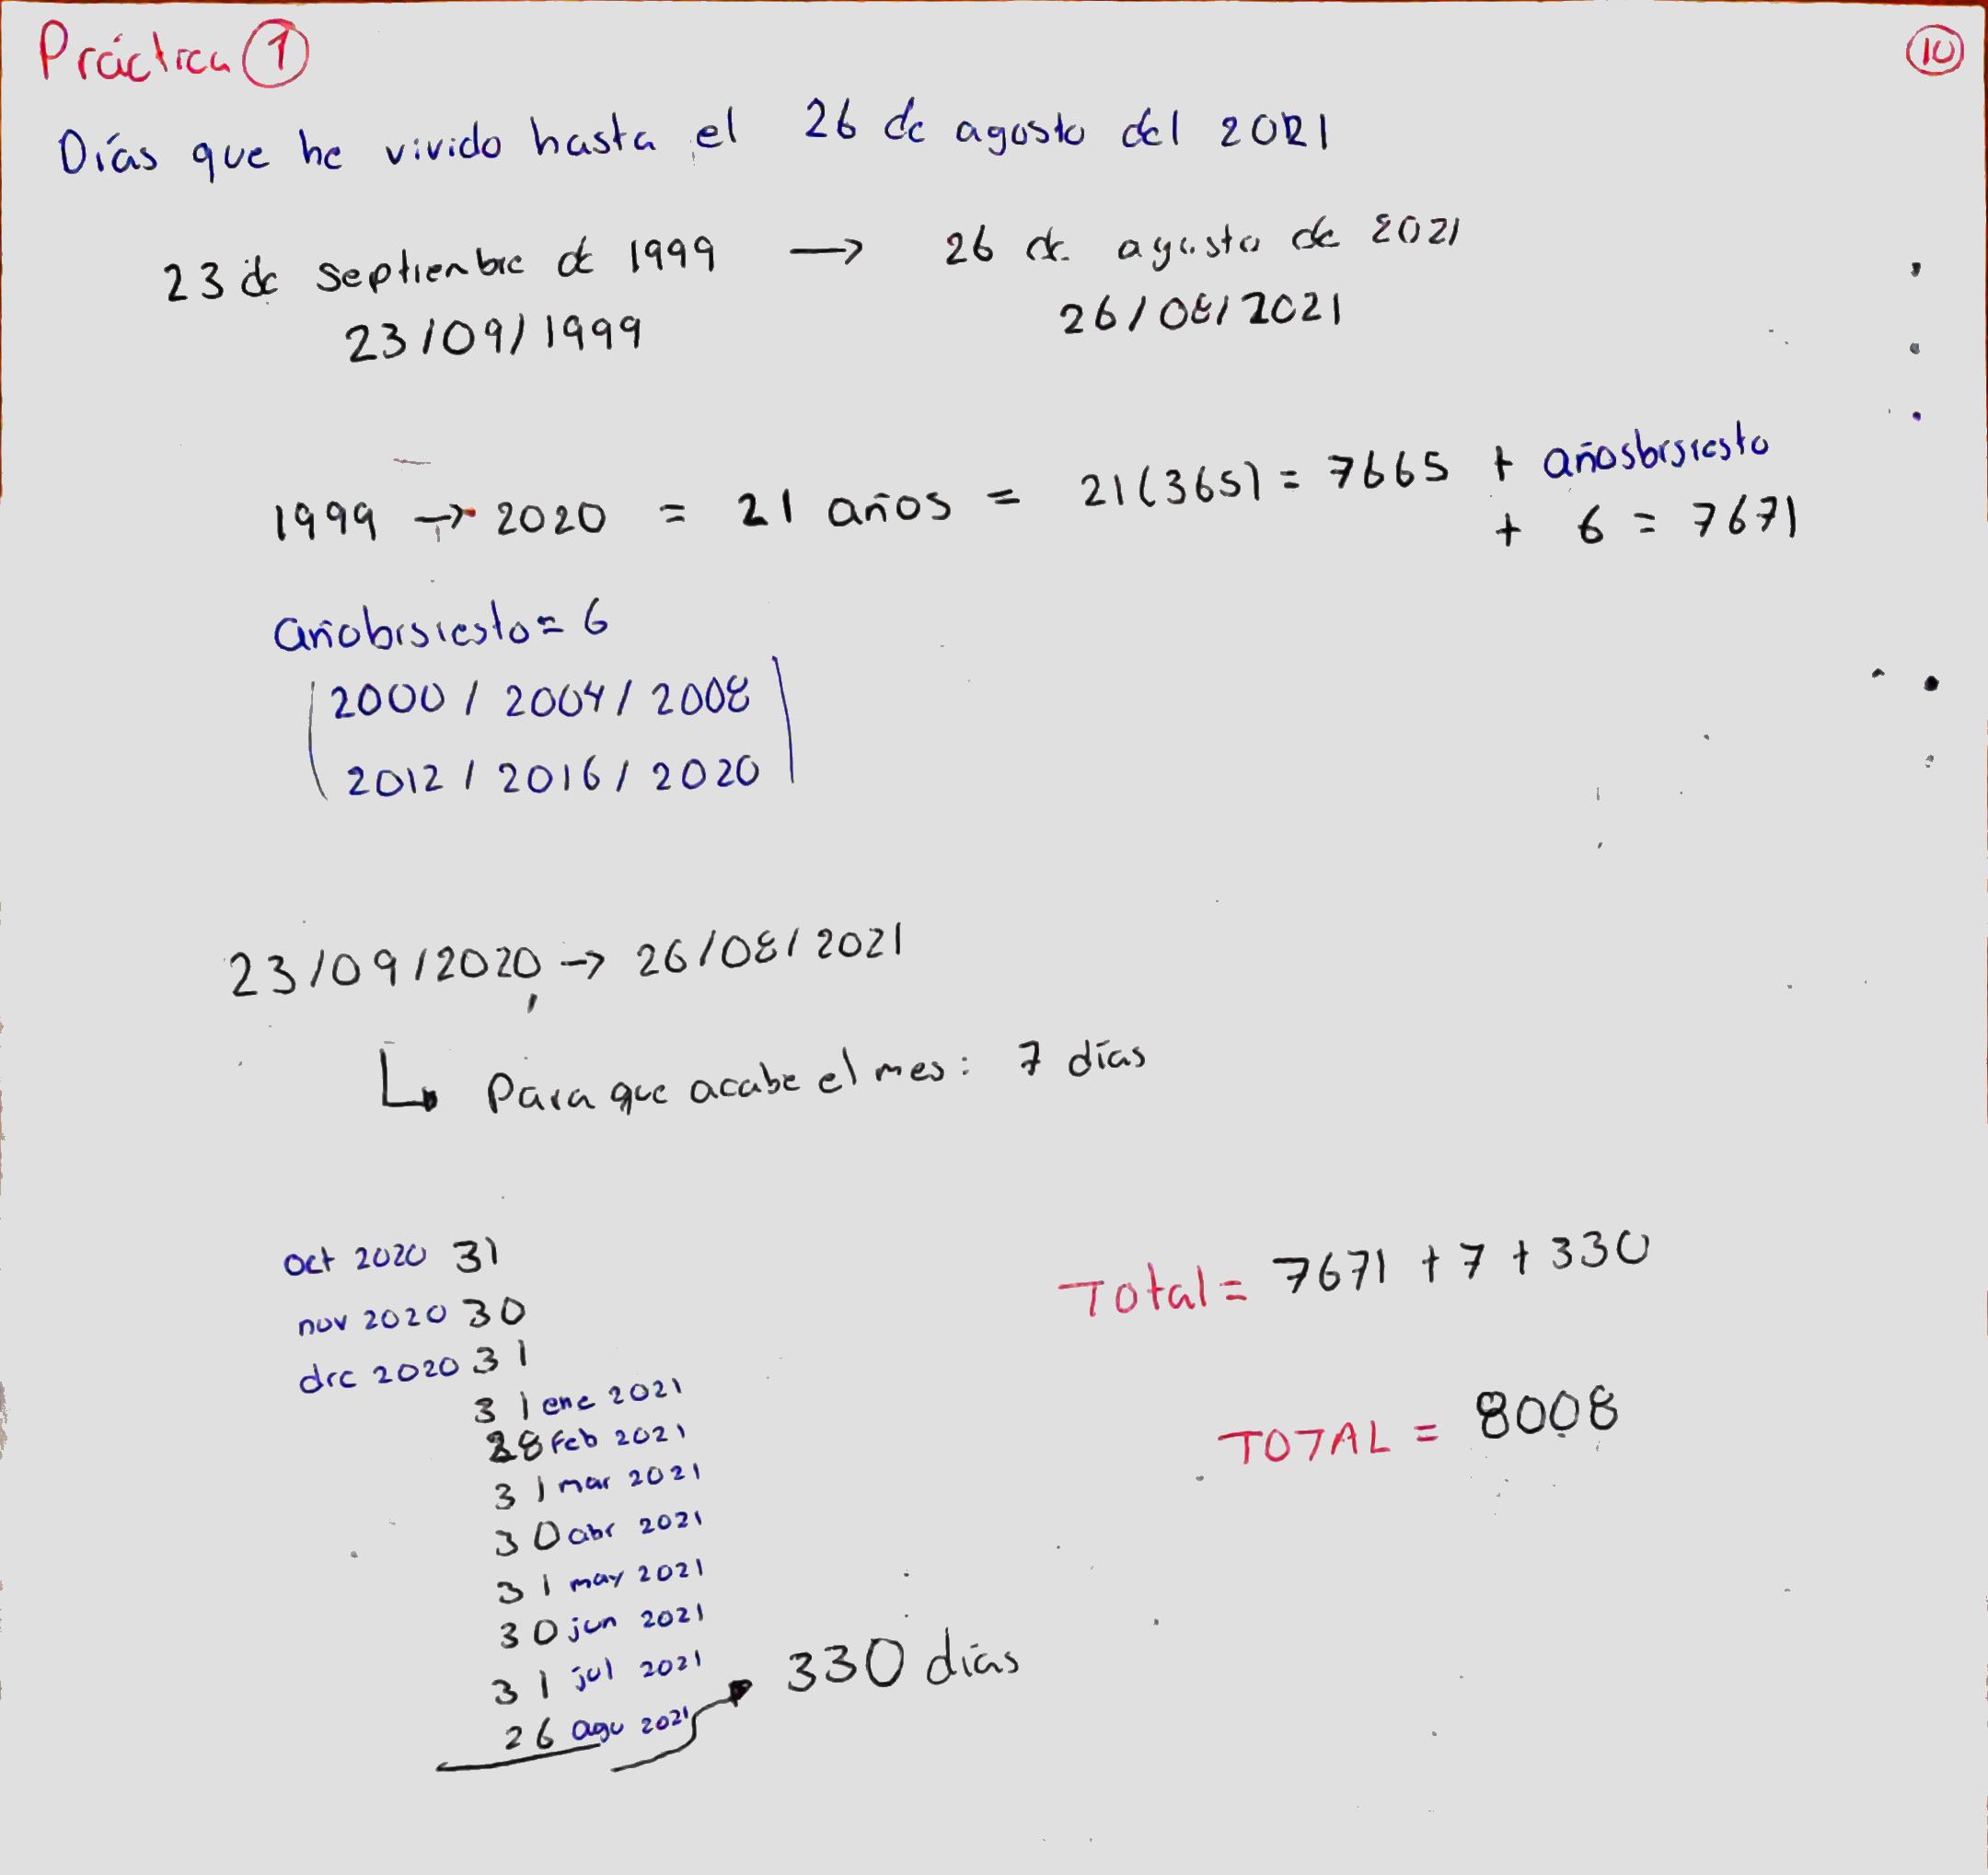 Práctica 1
10
Días que he vivido hasta el 26 de agosto del 2021
23 de septiembre de 1999 → 26 de agosto de 2021
23/09/1999 26/08/2021
1999 → 2020 = 21 años = 21(365) = 7665 + añosbisiesto
+ 6 = 7671
añobisiesto = 6
(2000 / 2004 / 2008
2012 / 2016 / 2020)
23/09/2020 → 26/08/2021
↳ Para que acabe el mes: 7 días
oct 2020 31
nov 2020 30
dic 2020 31
31 ene 2021
28 Feb 2021
31 mar 2021
30 abr 2021
31 may 2021
30 jun 2021
31 jul 2021
26 ago 2021 → 330 días
Total = 7671 + 7 + 330
TOTAL = 8008